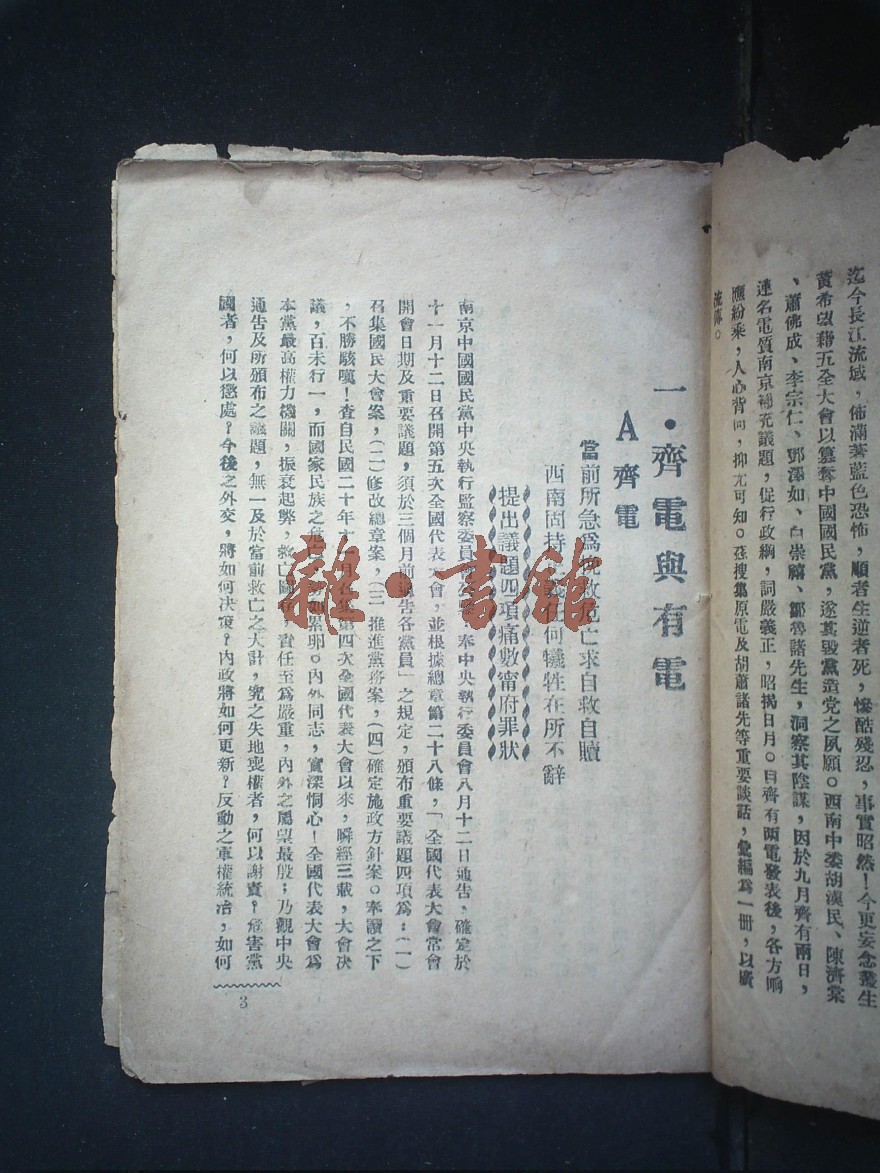 迄今長江流域，佈滿著藍色恐怖，順者生逆者死，慘酷殘忍，事實昭然！今更妄念叢生
黃希望藉五全大會以篡奪中國國民黨，遂其毀黨造党之夙願。西南中委胡漢民、陳濟棠
、蕭佛成、李宗仁、鄧澤如、白崇禧、鄒魯諸先生，洞察其陰謀，因於九月齊有兩日，
連名電質南京補充議題，促行政綱，詞嚴義正，昭揭日月。自齊有兩電發表後，各方响
應紛乘，人心背向，抑尤可知。亟搜集原電及胡蕭諸先等重要談話，彙編爲一冊，以廣
流傳。
一・齊電與有電
A 齊電
當前所急爲挽救危亡求自救自贖
西南固持 任何犧牲在所不辭
提出議題四項痛數甯府罪狀
南京中國國民黨中央執行監察委員 奉中央執行委員會八月十二日通告，確定於
十一月十二日召開第五次全國代表大會，並根據總章第二十八條，「全國代表大會常會
開會日期及重要議題，須於三個月前通告各黨員」之規定，頒布重要議題四項爲：（一）
召集國民大會案，（二）修改總章案，（三）推進黨務案，（四）確定施政方針案。奉讀之下
，不勝駭嘆！查自民國二十年十一月召集第四次全國代表大會以來，瞬經三載，大會决
議，百未行一，而國家民族之危 累卵。內外同志，實深恫心！全國代表大會爲
本黨最高權力機關，振衰起弊，救亡圖存，責任至爲嚴重，內外之屬望最殷；乃觀中央
通告及所頒布之議題，無一及於當前救亡之大計，究之失地喪權者，何以謝責？危害黨
國者，何以懲處？今後之外交，將如何决策？內政將如何更新？反動之軍權統治，如何
3
雜・書館